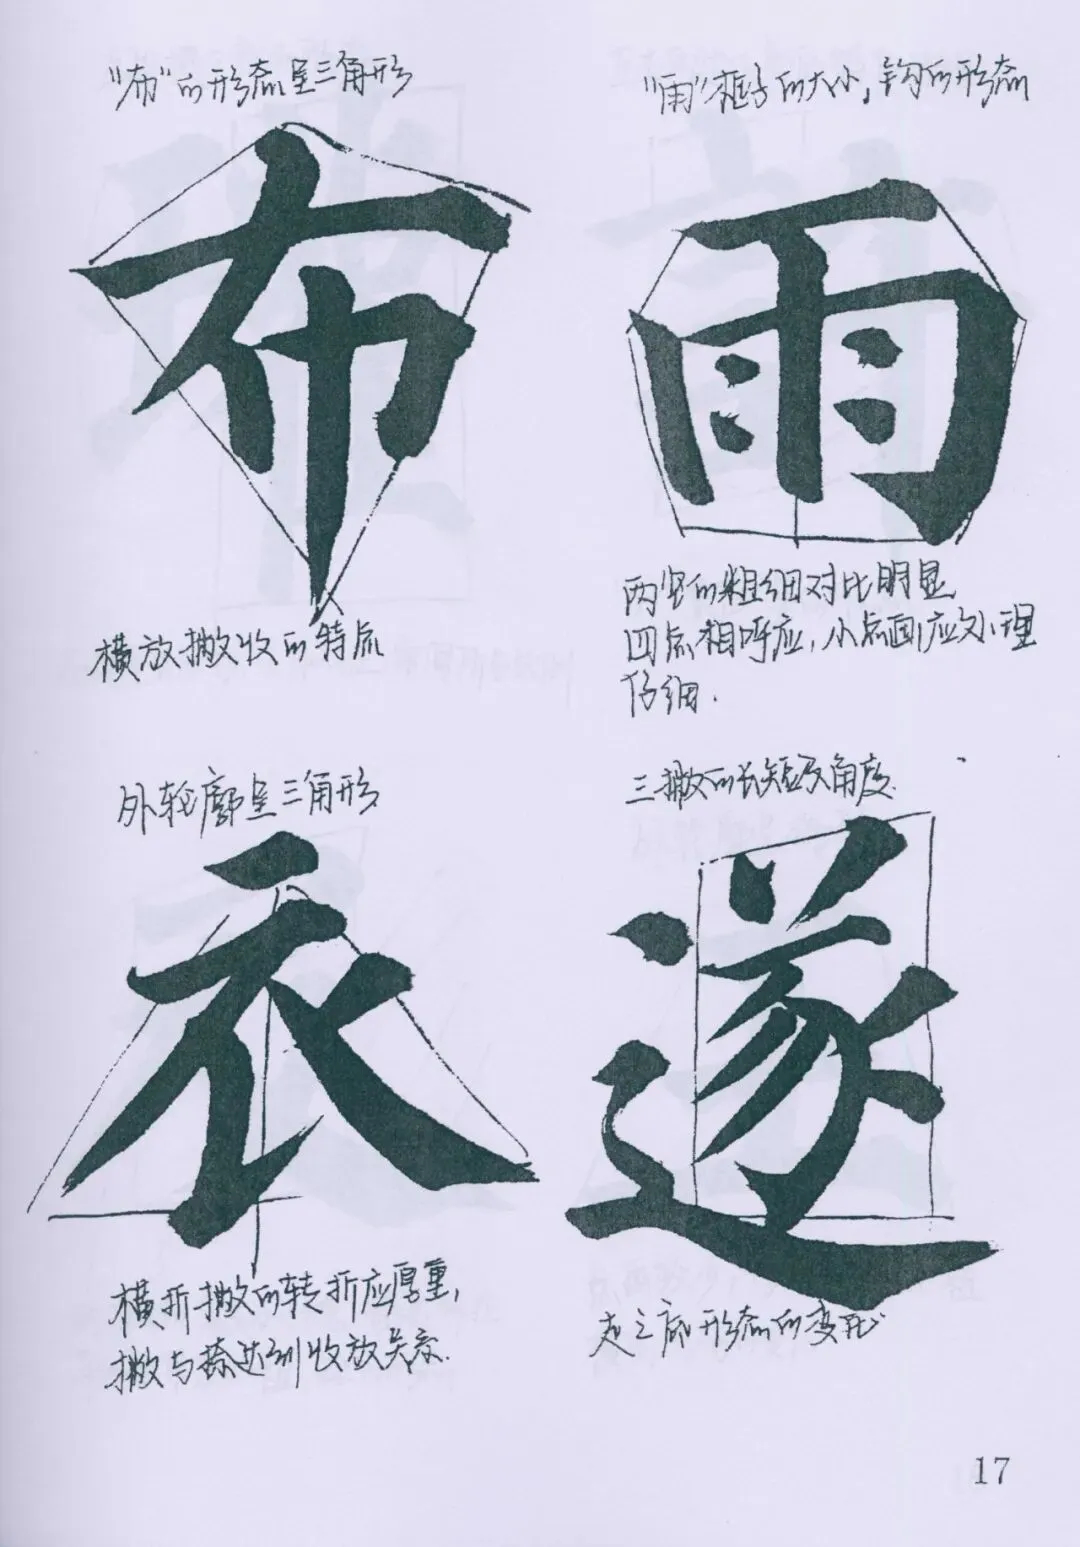 "布"的形态呈三角形
布
横放撇收的特点
"雨"框子的大小，钩的形态
雨
两竖的粗细对比明显
四点相呼应，小点画应处理
仔细．
外轮廓呈三角形
衣
横折撇的转折应厚重，
撇与捺达到收放关系．
三撇的长短及角度．
遂
走之底形态的变形
17